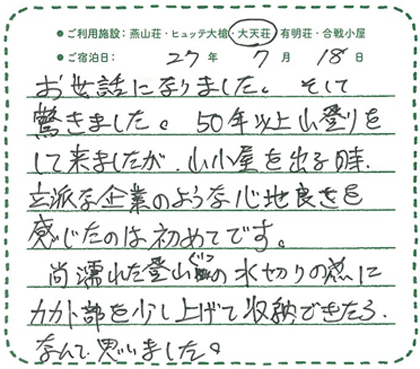 ●ご利用施設：燕山荘・ヒュッテ大槍・大天荘・有明荘・合戦小屋
●ご宿泊日： 27年 7月 18日
お世話になりました。そして
驚きました。50年以上山登りを
して来ましたが、山小屋を出る時、
立派な企業のような心地良さを
感じたのは初めてです。
尚濡れた登山靴の水切りの為に
カカト部を少し上げて収納できたら、
なんて思いました。